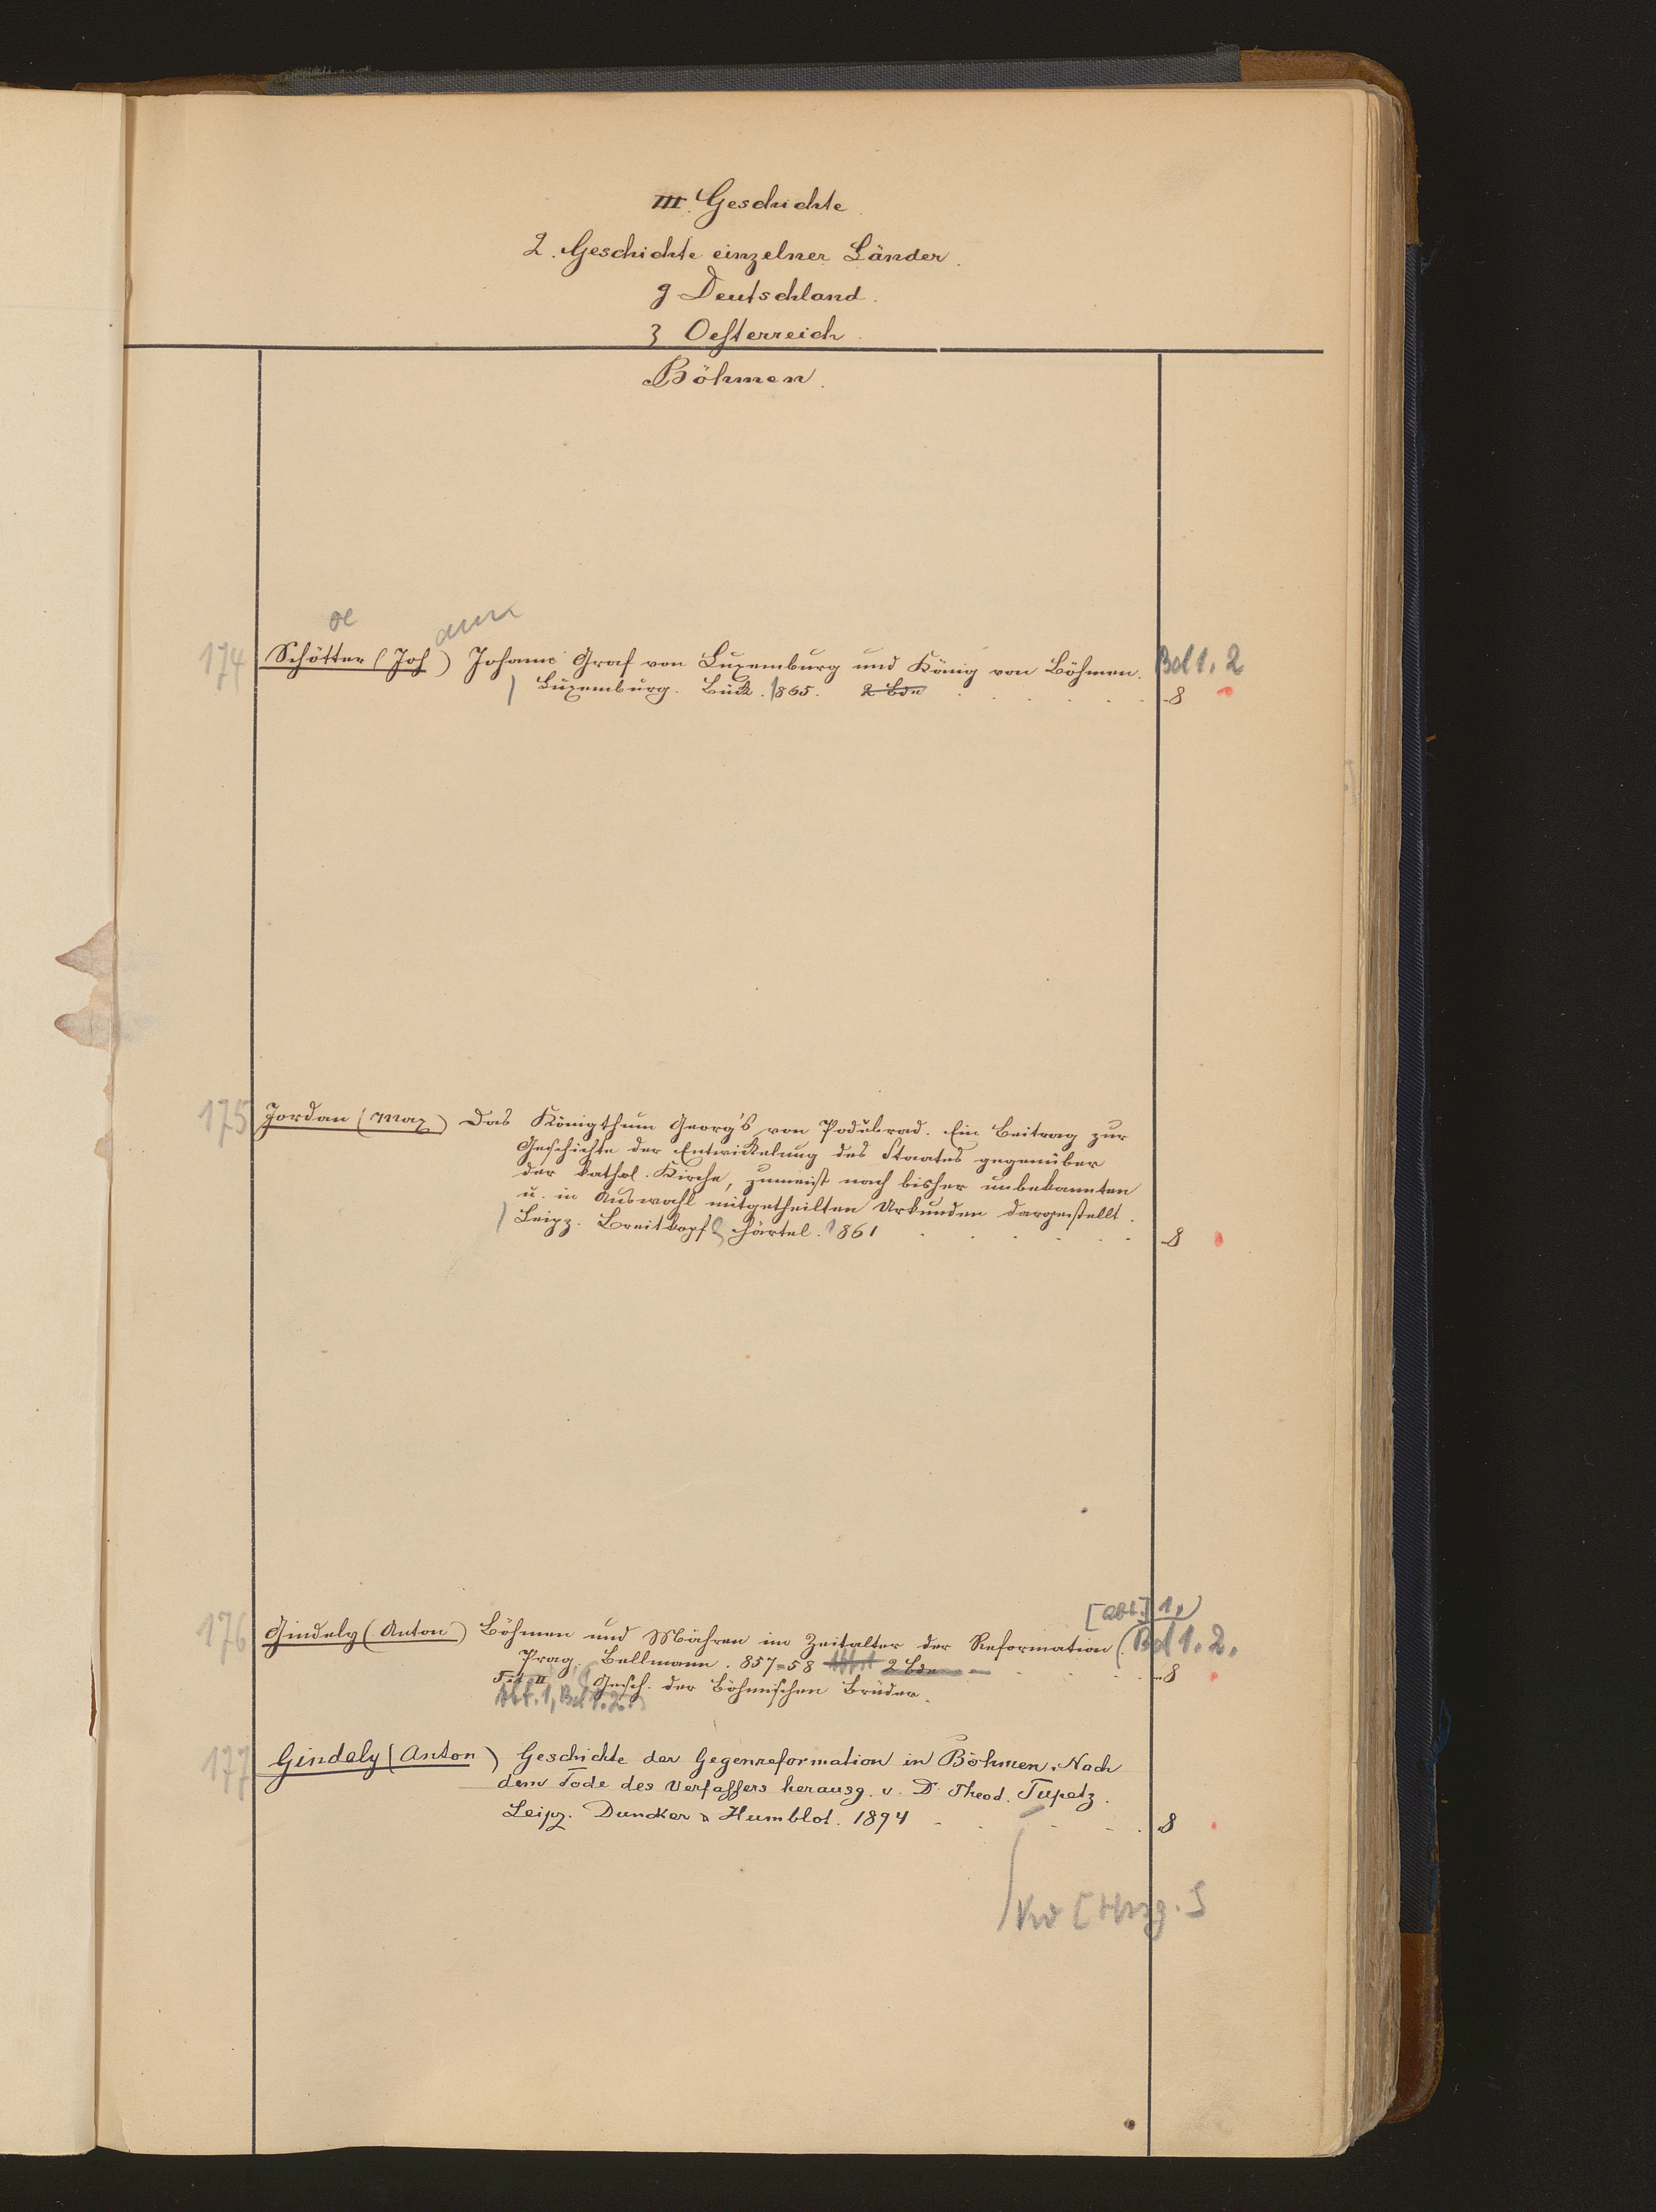 III. Geschichte
2. Geschichte einzelner Länder.
g Deutschland.
3 Oesterreich.
Böhmen.
oe ann
174 Schötter (Joh) Johann Graf von Luxemburg und König von Böhmen. Bd 1. 2
Luxemburg. Bück. 1865. 2 Bde 8
175 Jordan (Max) Das Königthum Georg's von Podiebrad. Ein Beitrag zur
Geschichte der Entwickelung des Staates gegenüber
der kathol. Kirche, zumeist nach bisher unbekannten
u. in Auswahl mitgetheilten Urkunden dargestellt.
Leipz. Breitkopf & Härtel. 1861 8
[Abt.] 1,
176 Gindely (Anton) Böhmen und Mähren im Zeitalter der Reformation. (Bd 1. 2.
Prag. Bellmann. 857-58 2 Bde 8
Tit II Gesch. der Böhmischen Brüder.
Abt. 1, Bd 1. 2.
177 Gindely (Anton) Geschichte der Gegenreformation in Böhmen. Nach
dem Tode des Verfassers herausg. v. Dr Theod. Tupetz.
Leipz. Duncker & Humblot. 1894 8
[Hrsg.